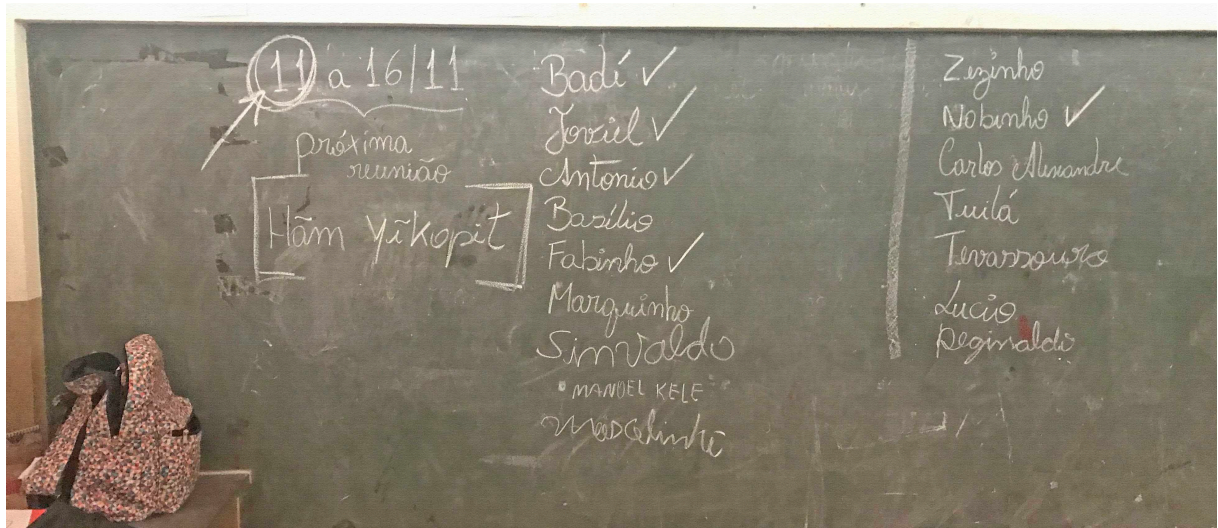 11 a 16/11
próxima
reunião
Hãm yĩkopit
Badé ✓
Joviel ✓
Antonio ✓
Basílio
Fabinho ✓
Marquinho
Sinvaldo
• MANOEL KELE
Zezinho
Nobinho ✓
Carlos Alexandre
Tuilá
Tevassouro
Lucio
Reginaldo